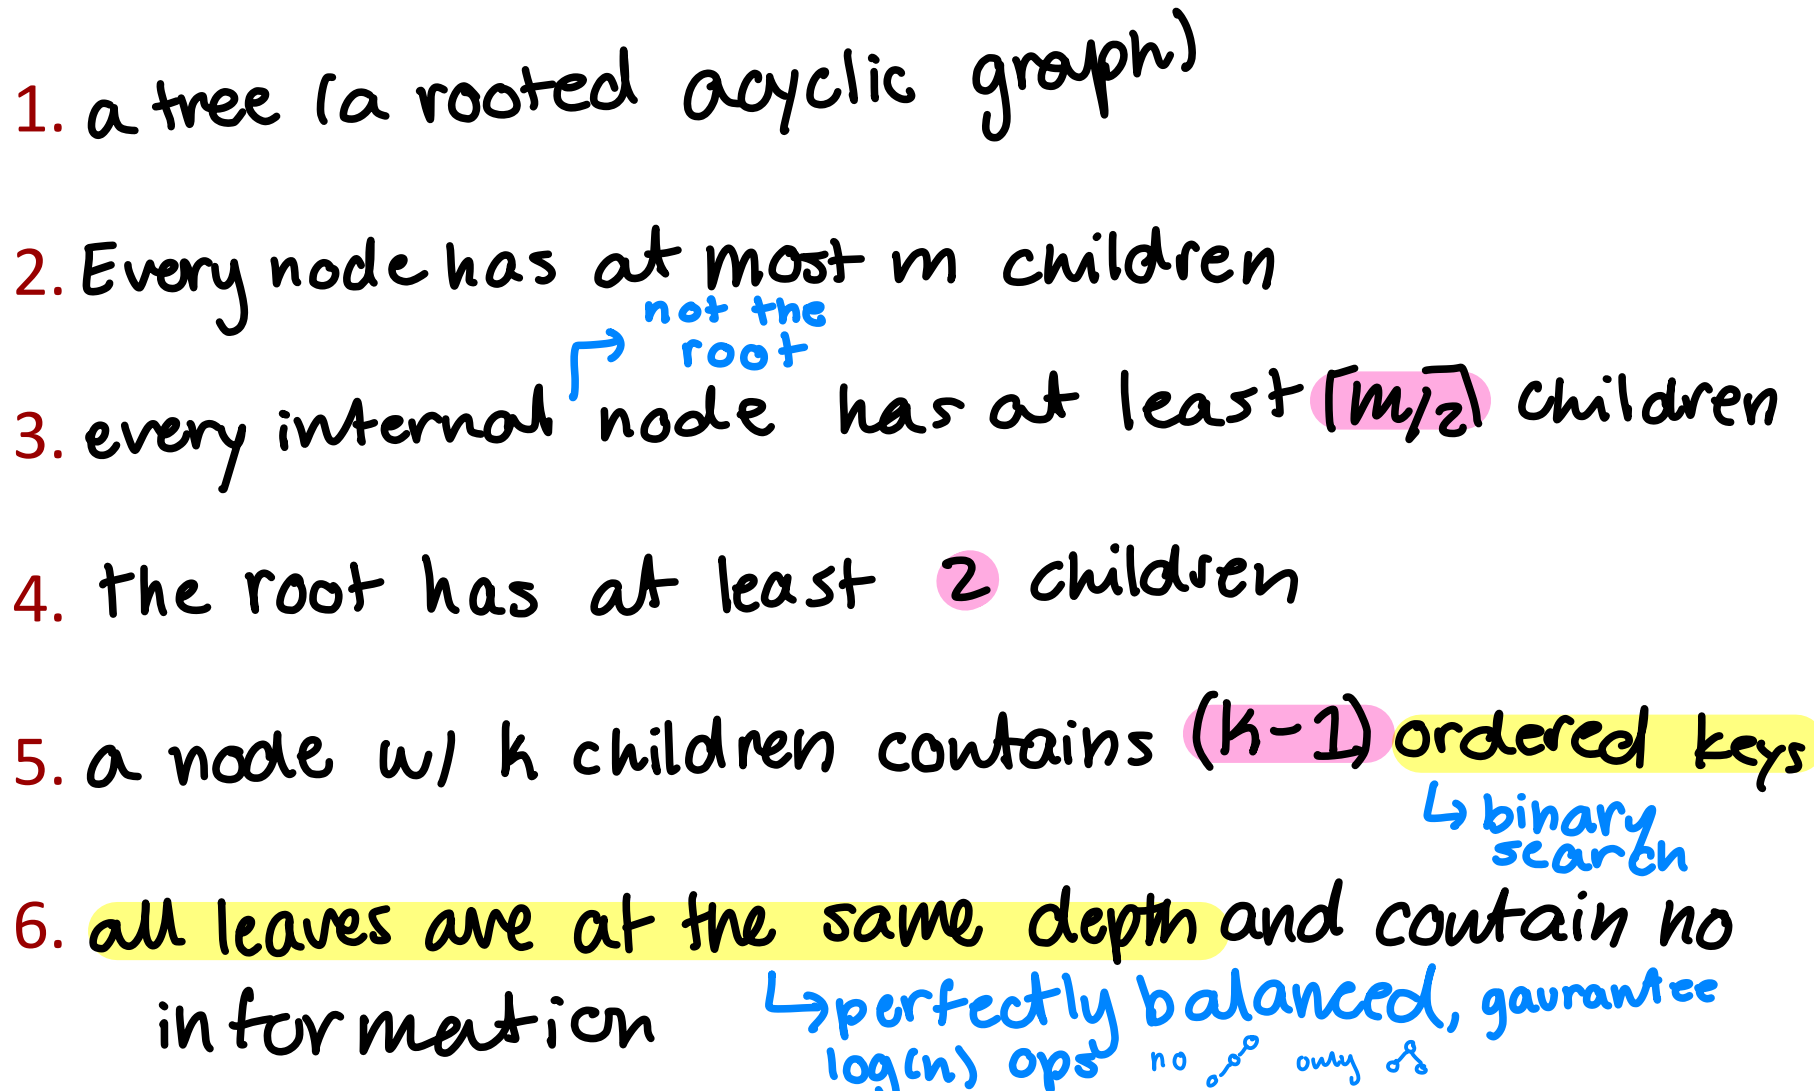 1. a tree (a rooted acyclic graph)
2. Every node has at most m children
not the
root
3. every internal node has at least ⌈m/2⌉ children
4. the root has at least 2 children
5. a node w/ k children contains (k-1) ordered keys
↳ binary
search
6. all leaves are at the same depth and contain no
information
↳ perfectly balanced, gaurantee
log(n) ops no only